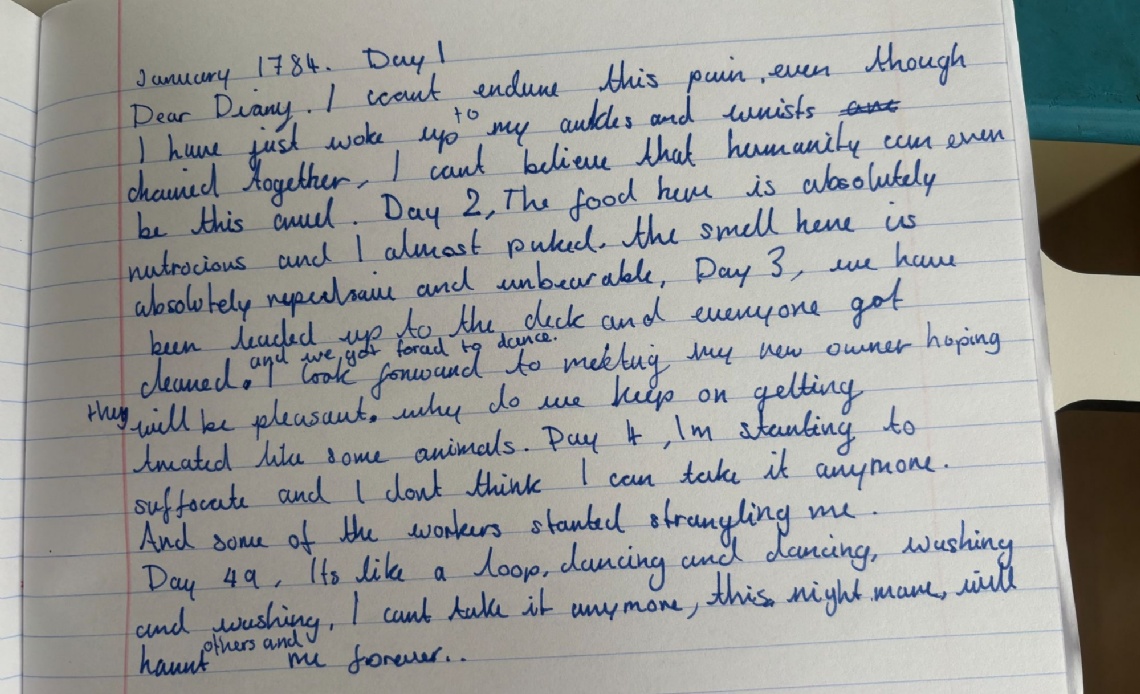 January 1784. Day 1
Dear Diary. I ccant endure this pain, even though
I have just woke up to my ankles and wrists are
chained together, I cant believe that humanity can even
be this cruel. Day 2, The food here is absolutely
nutrocious and I almost puked. the smell here is
absolutely and unbearable, Day 3, we have
been leaded up to the deck and everyone got
cleaned. and we got forced to dance. I look forward to meeting my new owner hoping
they will be pleasant. why do we keep on getting
treated like some animals. Day 4, Im starting to
suffocate and I dont think I can take it anymore.
And some of the workers started strangling me.
Day 49, Its like a loop, dancing and dancing, washing
and washing, I cant take it anymore, this night mare, will
haunt others and me forever..